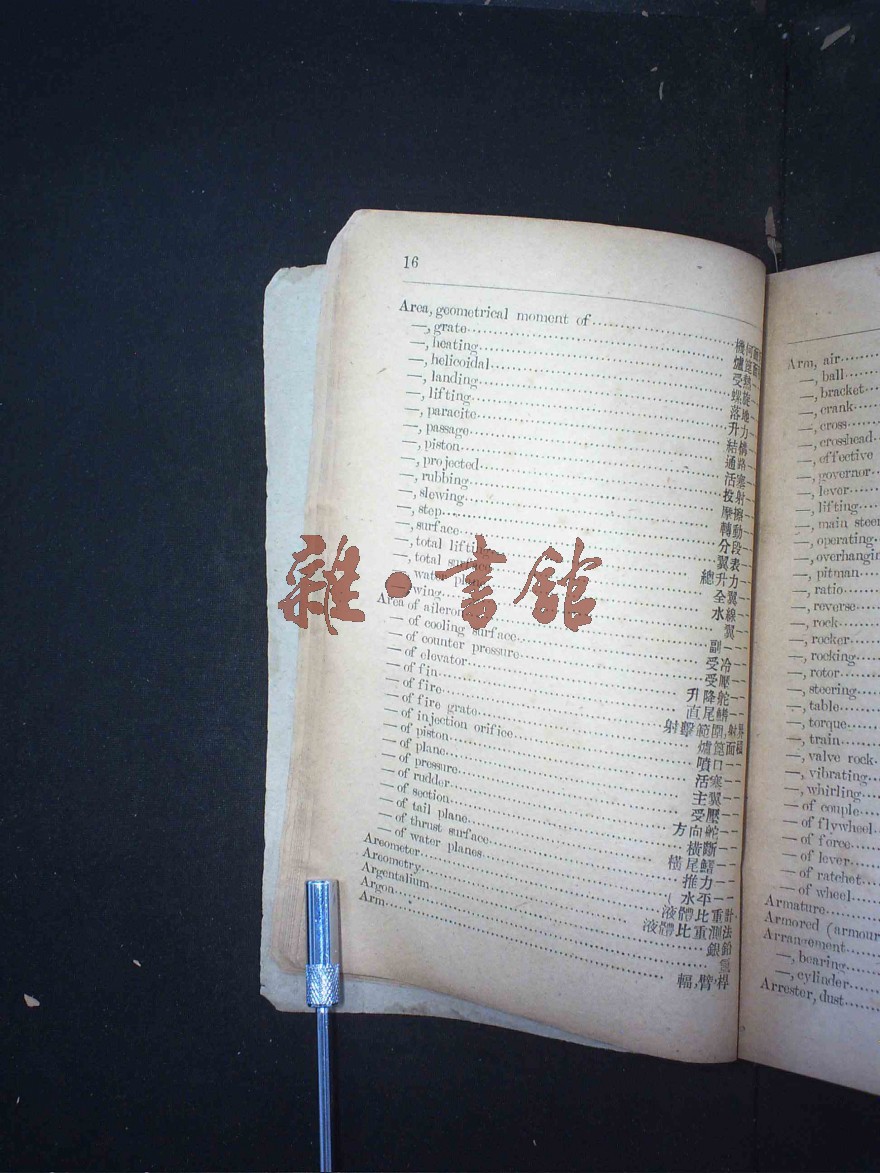 16
Area, geometrical moment of
—, grate
—, heating
—, helicoidal
—, landing
—, lifting
—, paracite
—, passage
—, piston
—, projected
—, rubbing
—, slewing
—, step
—, surface
—, total lifting
—, total surface
—, water plane
—, wing
Area of aileron
— of cooling surface
— of counter pressure
— of elevator
— of fin
— of fire
— of fire grate
— of injection orifice
— of piston
— of plane
— of pressure
— of rudder
— of section
— of tail plane
— of thrust surface
— of water planes
Areometer
Areometry
Argentalium
Argon
Arm
受熱—
螺旋—
落地—
升力—
結構—
通路—
活塞—
投射—
摩擦—
轉動—
分段—
翼表—
總升力—
全翼—
水線—
翼—
副——
受冷—
受壓—
升降舵—
直尾鰭—
射擊範圍,射界
爐篦面積
噴口—
活塞—
主翼—
受壓—
方向舵—
橫斷—
橫尾鰭—
推力—
水平—
液體比重計
液體比重測法
銀鉛
氬
輻,臂,桿
雜·書館
Arm, air
—, ball
—, bracket
—, crank
—, cross
—, crosshead
—, effective
—, governor
—, lever
—, lifting
—, main
—, operating
—, pitman
—, ratio
—, reverse
—, rock
—, rocker
—, rocking
—, rotor
—, steering
—, table
—, torque
—, train
—, valve rock
—, vibrating
—, whirling
— of couple
— of flywheel
— of force
— of lever
— of ratchet
— of wheel
Armature
Armored
Arrangement
—, bearing
—, cylinder
Arrester, dust